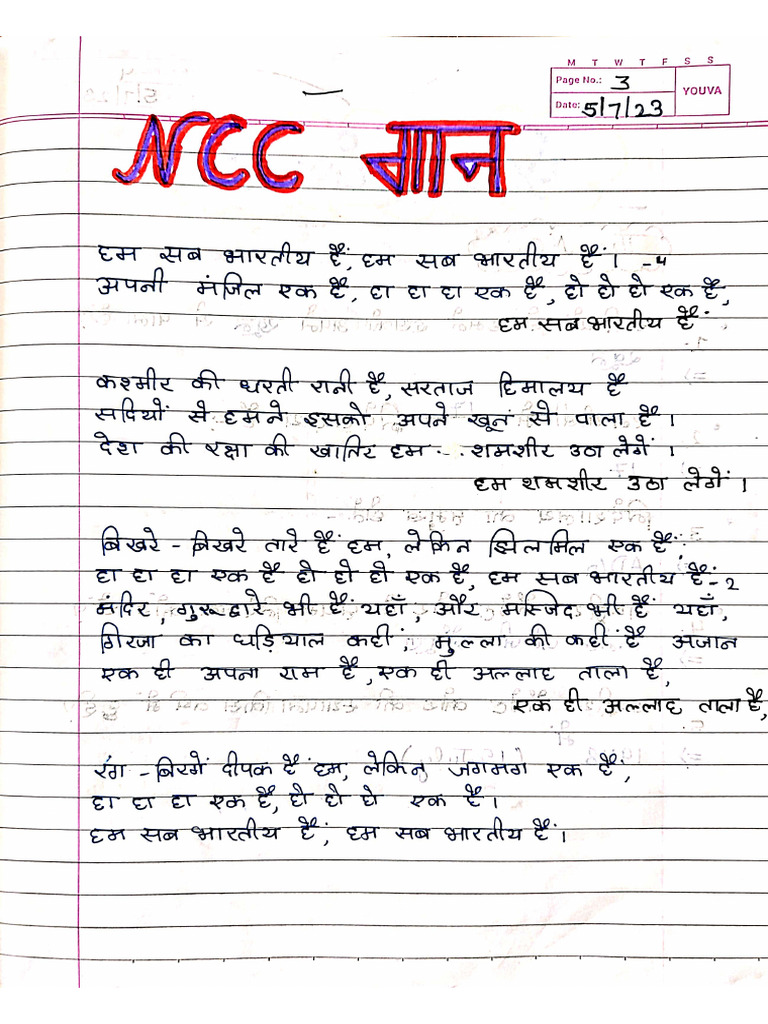 M T W T F S S
Page No.: 3
YOUVA
Date: 5/7/23
NCC गान
हम सब भारतीय हैं, हम सब भारतीय हैं। -4
अपनी मंजिल एक है, हा हा हा एक है, हो हो हो एक है,
हम सब भारतीय हैं
कश्मीर की धरती रानी है, सरताज हिमालय है
सदियों से हमने इसको अपने खून से पाला है।
देश की रक्षा की खातिर हम शमशीर उठा लेगें।
हम शमशीर उठा लेगें।
बिखरे - बिखरे तारे हैं हम, लेकिन झिलमिल एक है,
हा हा हा एक है हो हो हो एक है, हम सब भारतीय हैं -2
मंदिर, गुरुद्वारे भी हैं यहाँ, और मस्जिद भी है यहाँ,
गिरजा का घड़ियाल कहीं, मुल्ला की कहीं है अजान
एक ही अपना राम है, एक ही अल्लाह ताला है,
एक ही अल्लाह ताला है,
रंग - बिरगें दीपक हैं हम, लेकिन जगमग एक है,
हा हा हा एक है, हो हो हो एक है।
हम सब भारतीय हैं, हम सब भारतीय हैं।